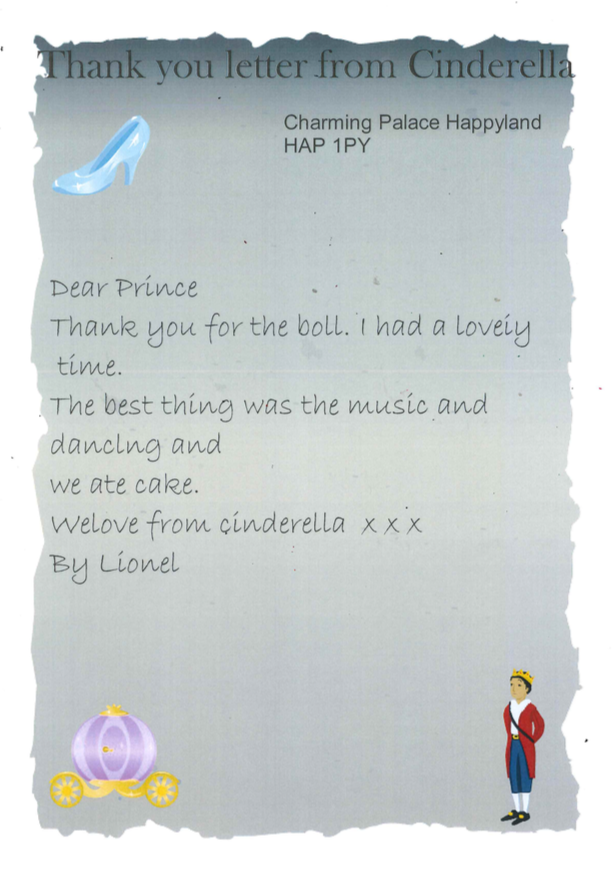 Thank you letter from Cinderella
Charming Palace Happyland
HAP 1PY
Dear Prince
Thank you for the boll. I had a loveiy
time.
The best thing was the music and
danclng and
we ate cake.
Welove from cinderella x x x
By Lionel